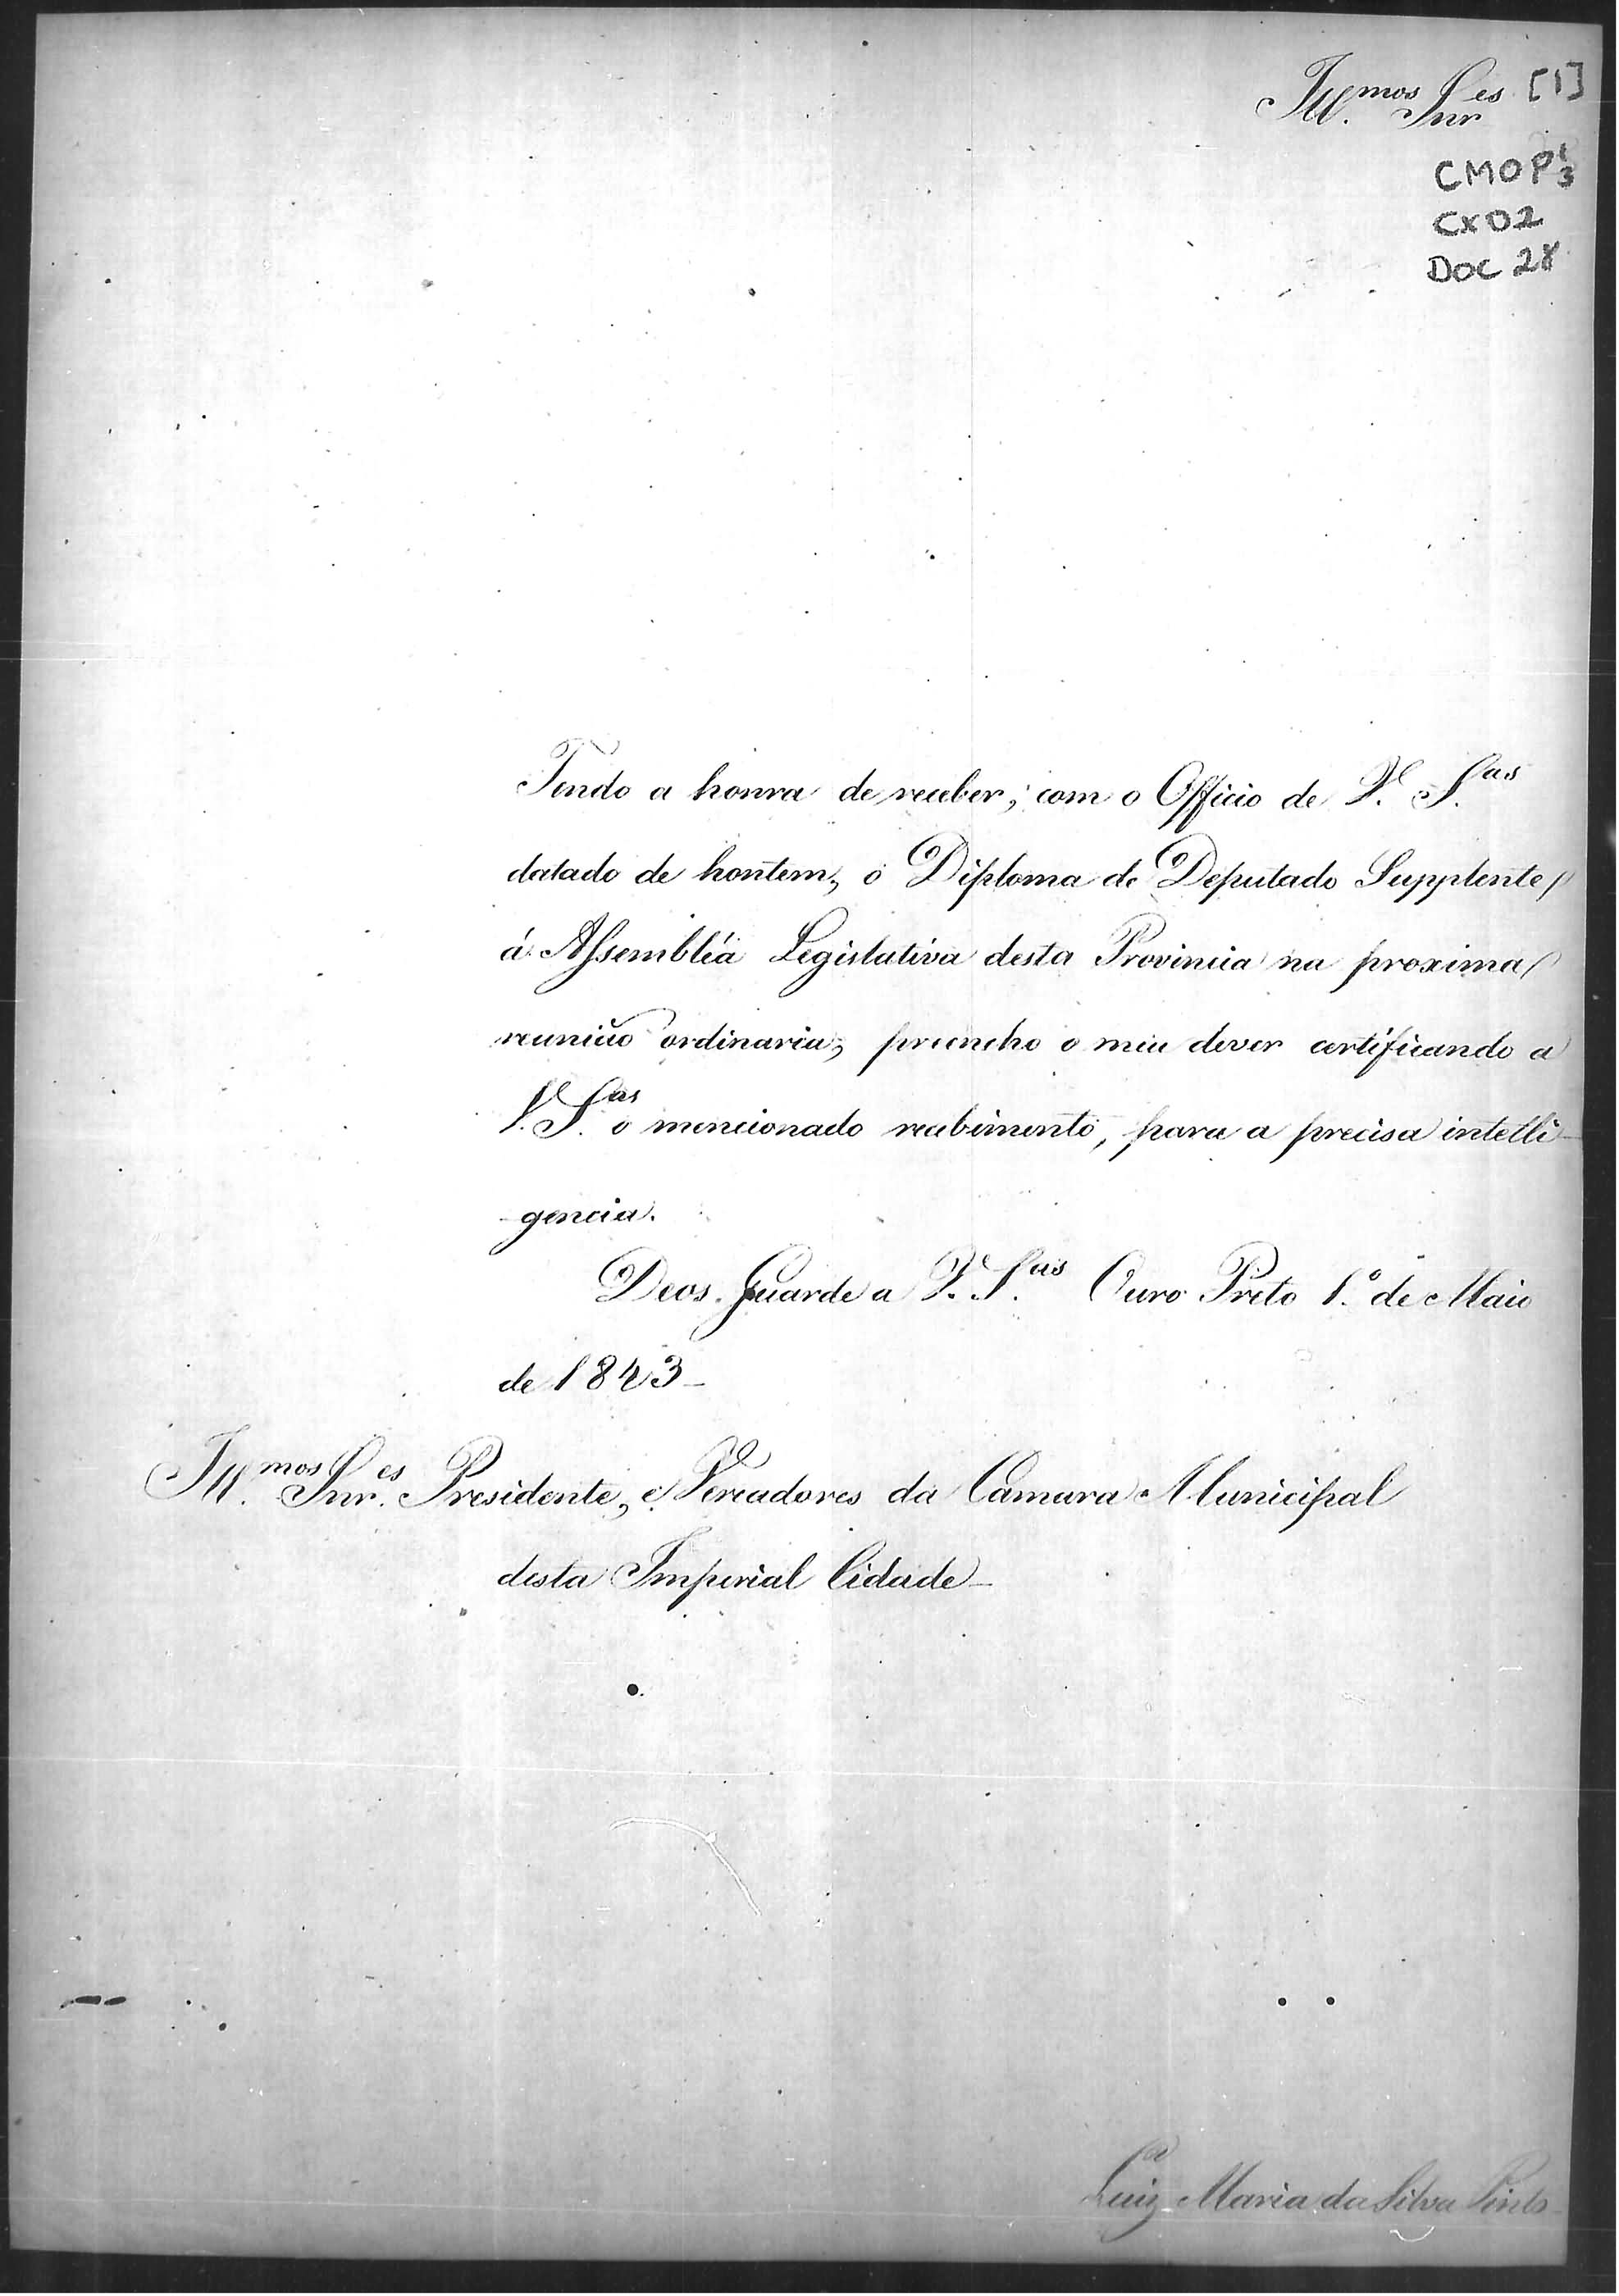 Ill.mos Snr.es [1]
CMOP 1/3
CX02
DOC 28
Tendo a honra de receber, com o Officio de V. S.as
datado de hontem, o Diploma de Deputado Supplente
á Assembléa Legislativa desta Provincia na proxima
reunião ordinaria, preencho o meu dever certificando a
V. S.as o mencionado recebimento, para a precisa intelli-
gencia.
Deos Guarde a V. S.as Ouro Preto 1.º de Maio
de 1843-
Ill.mos Snr.es Presidente, e Vereadores da Camara Municipal
desta Imperial Cidade-
Luiz Maria da Silva Pinto